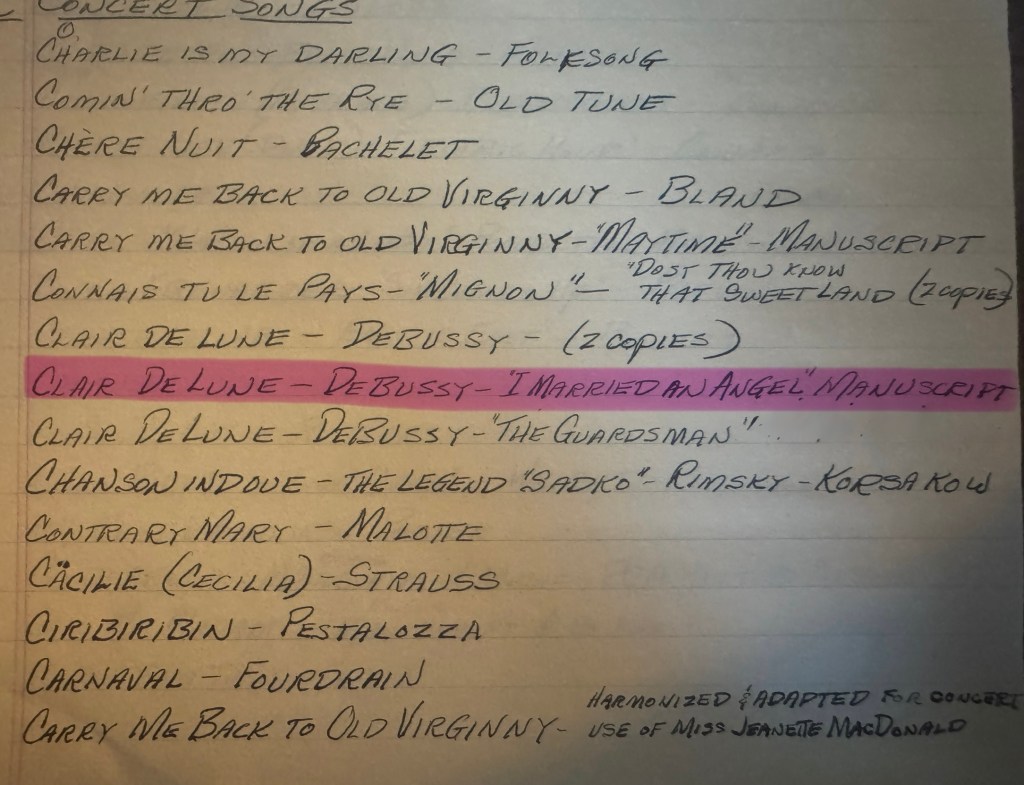 CONCERT SONGS
O, CHARLIE IS MY DARLING - FOLKSONG
COMIN' THRO' THE RYE - OLD TUNE
CHÈRE NUIT - BACHELET
CARRY ME BACK TO OLD VIRGINNY - BLAND
CARRY ME BACK TO OLD VIRGINNY - "MAYTIME" - MANUSCRIPT
CONNAIS TU LE PAYS - "MIGNON" - "DOST THOU KNOW
THAT SWEET LAND (2 COPIES)
CLAIR DE LUNE - DEBUSSY - (2 COPIES)
CLAIR DE LUNE - DEBUSSY - "I MARRIED AN ANGEL" MANUSCRIPT
CLAIR DE LUNE - DEBUSSY - "THE GUARDSMAN"
CHANSON INDOUE - THE LEGEND "SADKO" - RIMSKY - KORSAKOW
CONTRARY MARY - MALOTTE
CÄCILIE (CECILIA) - STRAUSS
CIRIBIRIBIN - PESTALOZZA
CARNAVAL - FOURDRAIN
CARRY ME BACK TO OLD VIRGINNY - HARMONIZED & ADAPTED FOR CONCERT
USE OF MISS JEANETTE MACDONALD